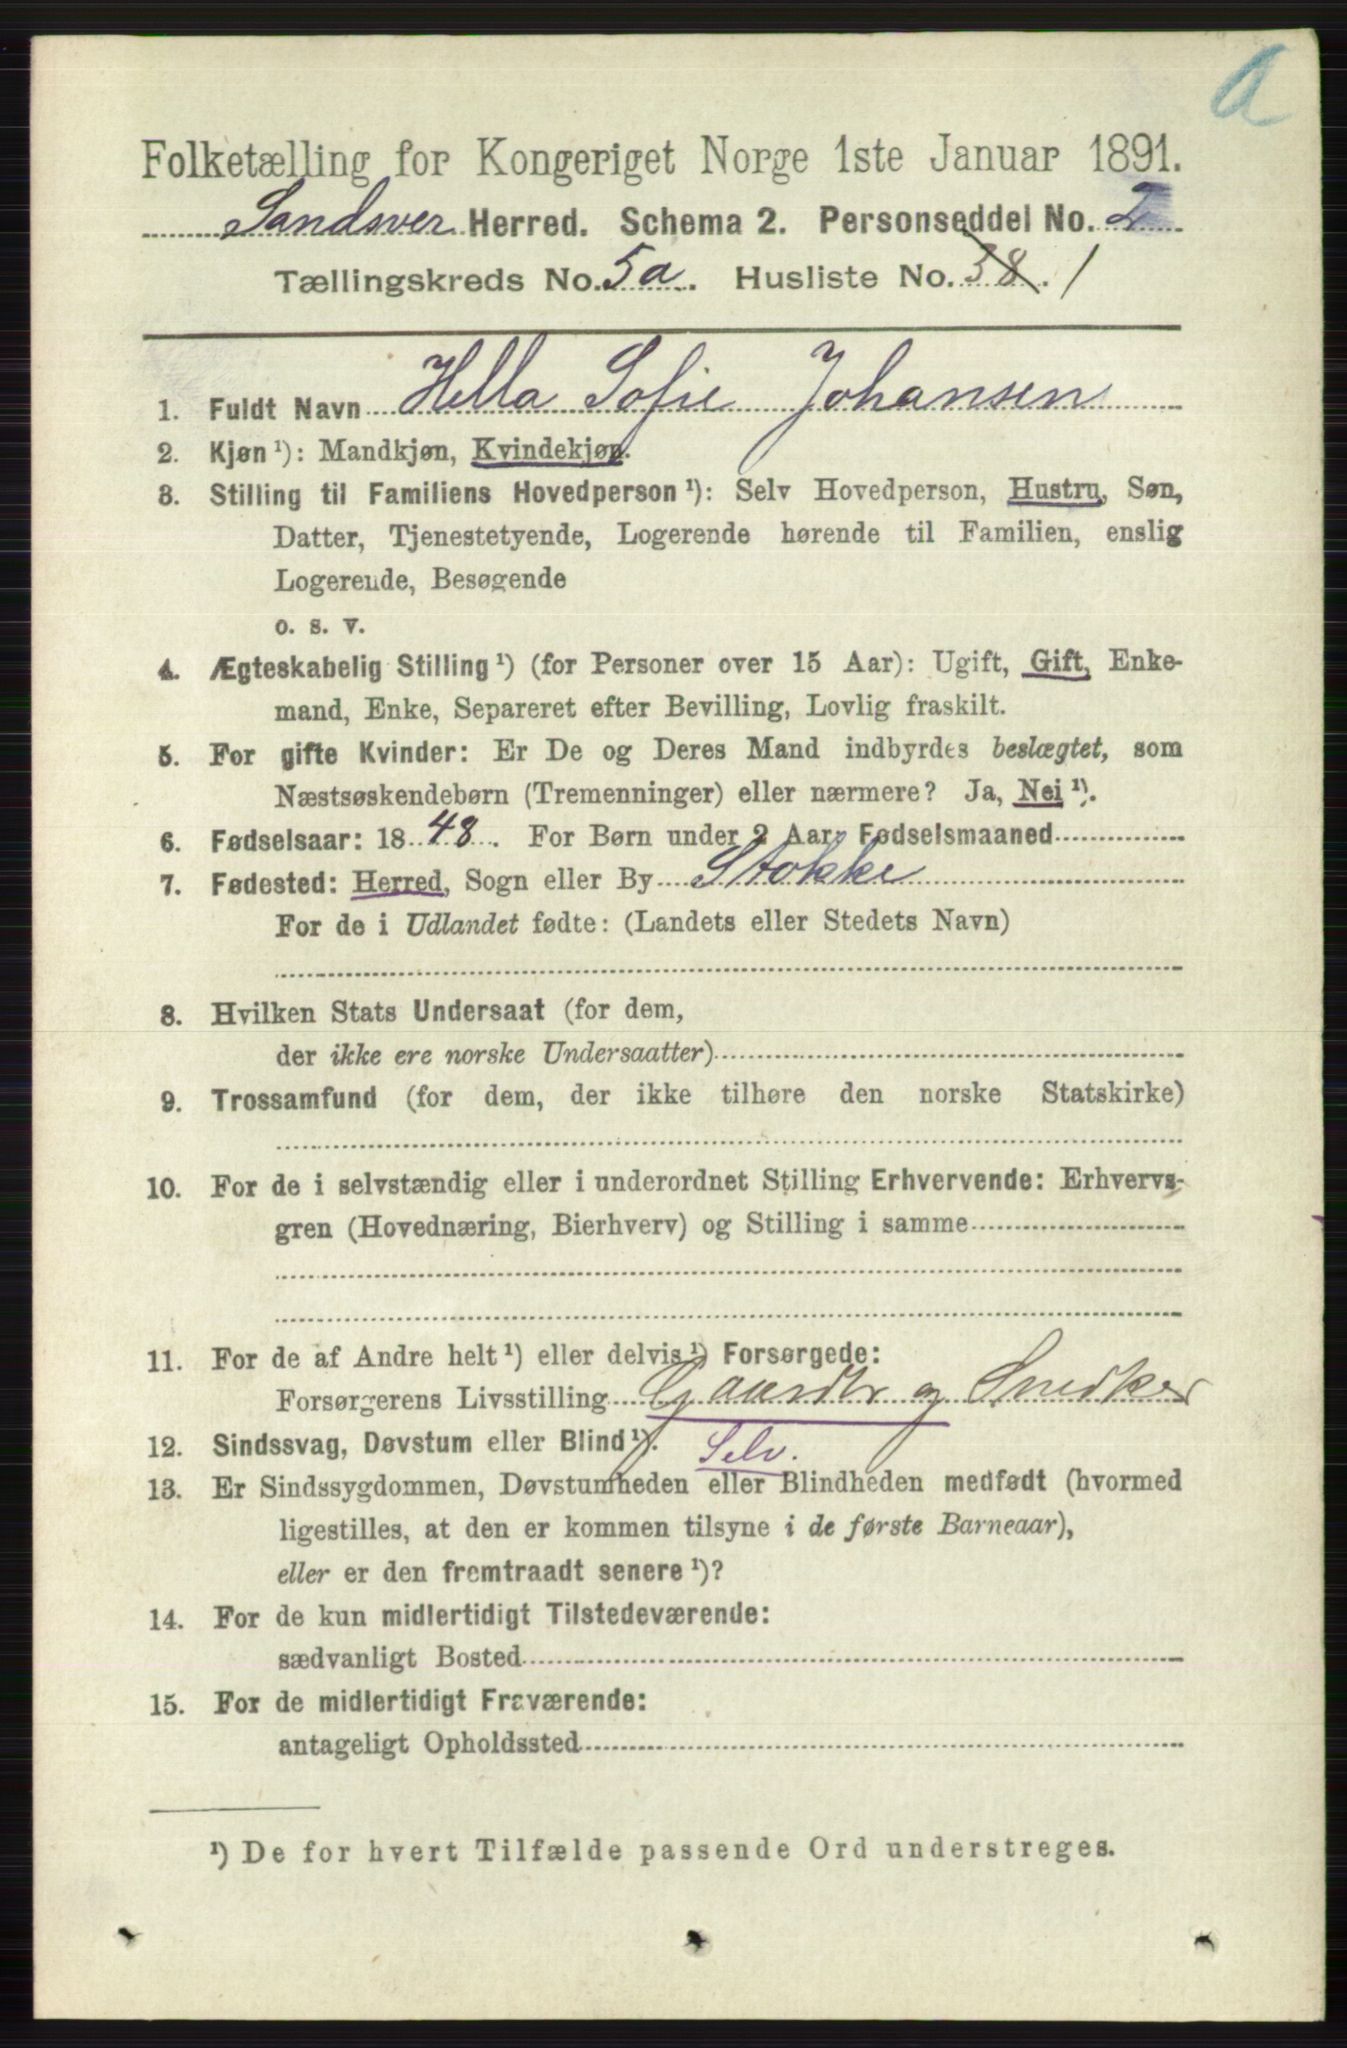 a
Folketælling for Kongeriget Norge 1ste Januar 1891.
Sandsver Herred. Schema 2. Personseddel No. 2
Tællingskreds No. 5a. Husliste No. 38. 1
1. Fuldt Navn Hella Sofie Johansen
2. Kjøn ¹): Mandkjøn, Kvindekjøn.
3. Stilling til Familiens Hovedperson ¹): Selv Hovedperson, Hustru, Søn,
Datter, Tjenestetyende, Logerende hørende til Familien, enslig
Logerende, Besøgende
o. s. v.
4. Ægteskabelig Stilling ¹) (for Personer over 15 Aar): Ugift, Gift, Enke-
mand, Enke, Separeret efter Bevilling, Lovlig fraskilt.
5. For gifte Kvinder: Er De og Deres Mand indbyrdes beslægtet, som
Næstsøskendebørn (Tremenninger) eller nærmere? Ja, Nei ¹).
6. Fødselsaar: 18 48. For Børn under 2 Aar: Fødselsmaaned
7. Fødested: Herred, Sogn eller By Stokke
For de i Udlandet fødte: (Landets eller Stedets Navn)
8. Hvilken Stats Undersaat (for dem,
der ikke ere norske Undersaatter)
9. Trossamfund (for dem, der ikke tilhøre den norske Statskirke)
10. For de i selvstændig eller i underordnet Stilling Erhvervende: Erhvervs-
gren (Hovednæring, Bierhverv) og Stilling i samme
11. For de af Andre helt ¹) eller delvis ¹) Forsørgede:
Forsørgerens Livsstilling Gaardbr og Snedker
12. Sindssvag, Døvstum eller Blind ¹). Selv.
13. Er Sindssygdommen, Døvstumheden eller Blindheden medfødt (hvormed
ligestilles, at den er kommen tilsyne i de første Barneaar),
eller er den fremtraadt senere ¹)?
14. For de kun midlertidigt Tilstedeværende:
sædvanligt Bosted
15. For de midlertidigt Fraværende:
antageligt Opholdssted
¹) De for hvert Tilfælde passende Ord understreges.